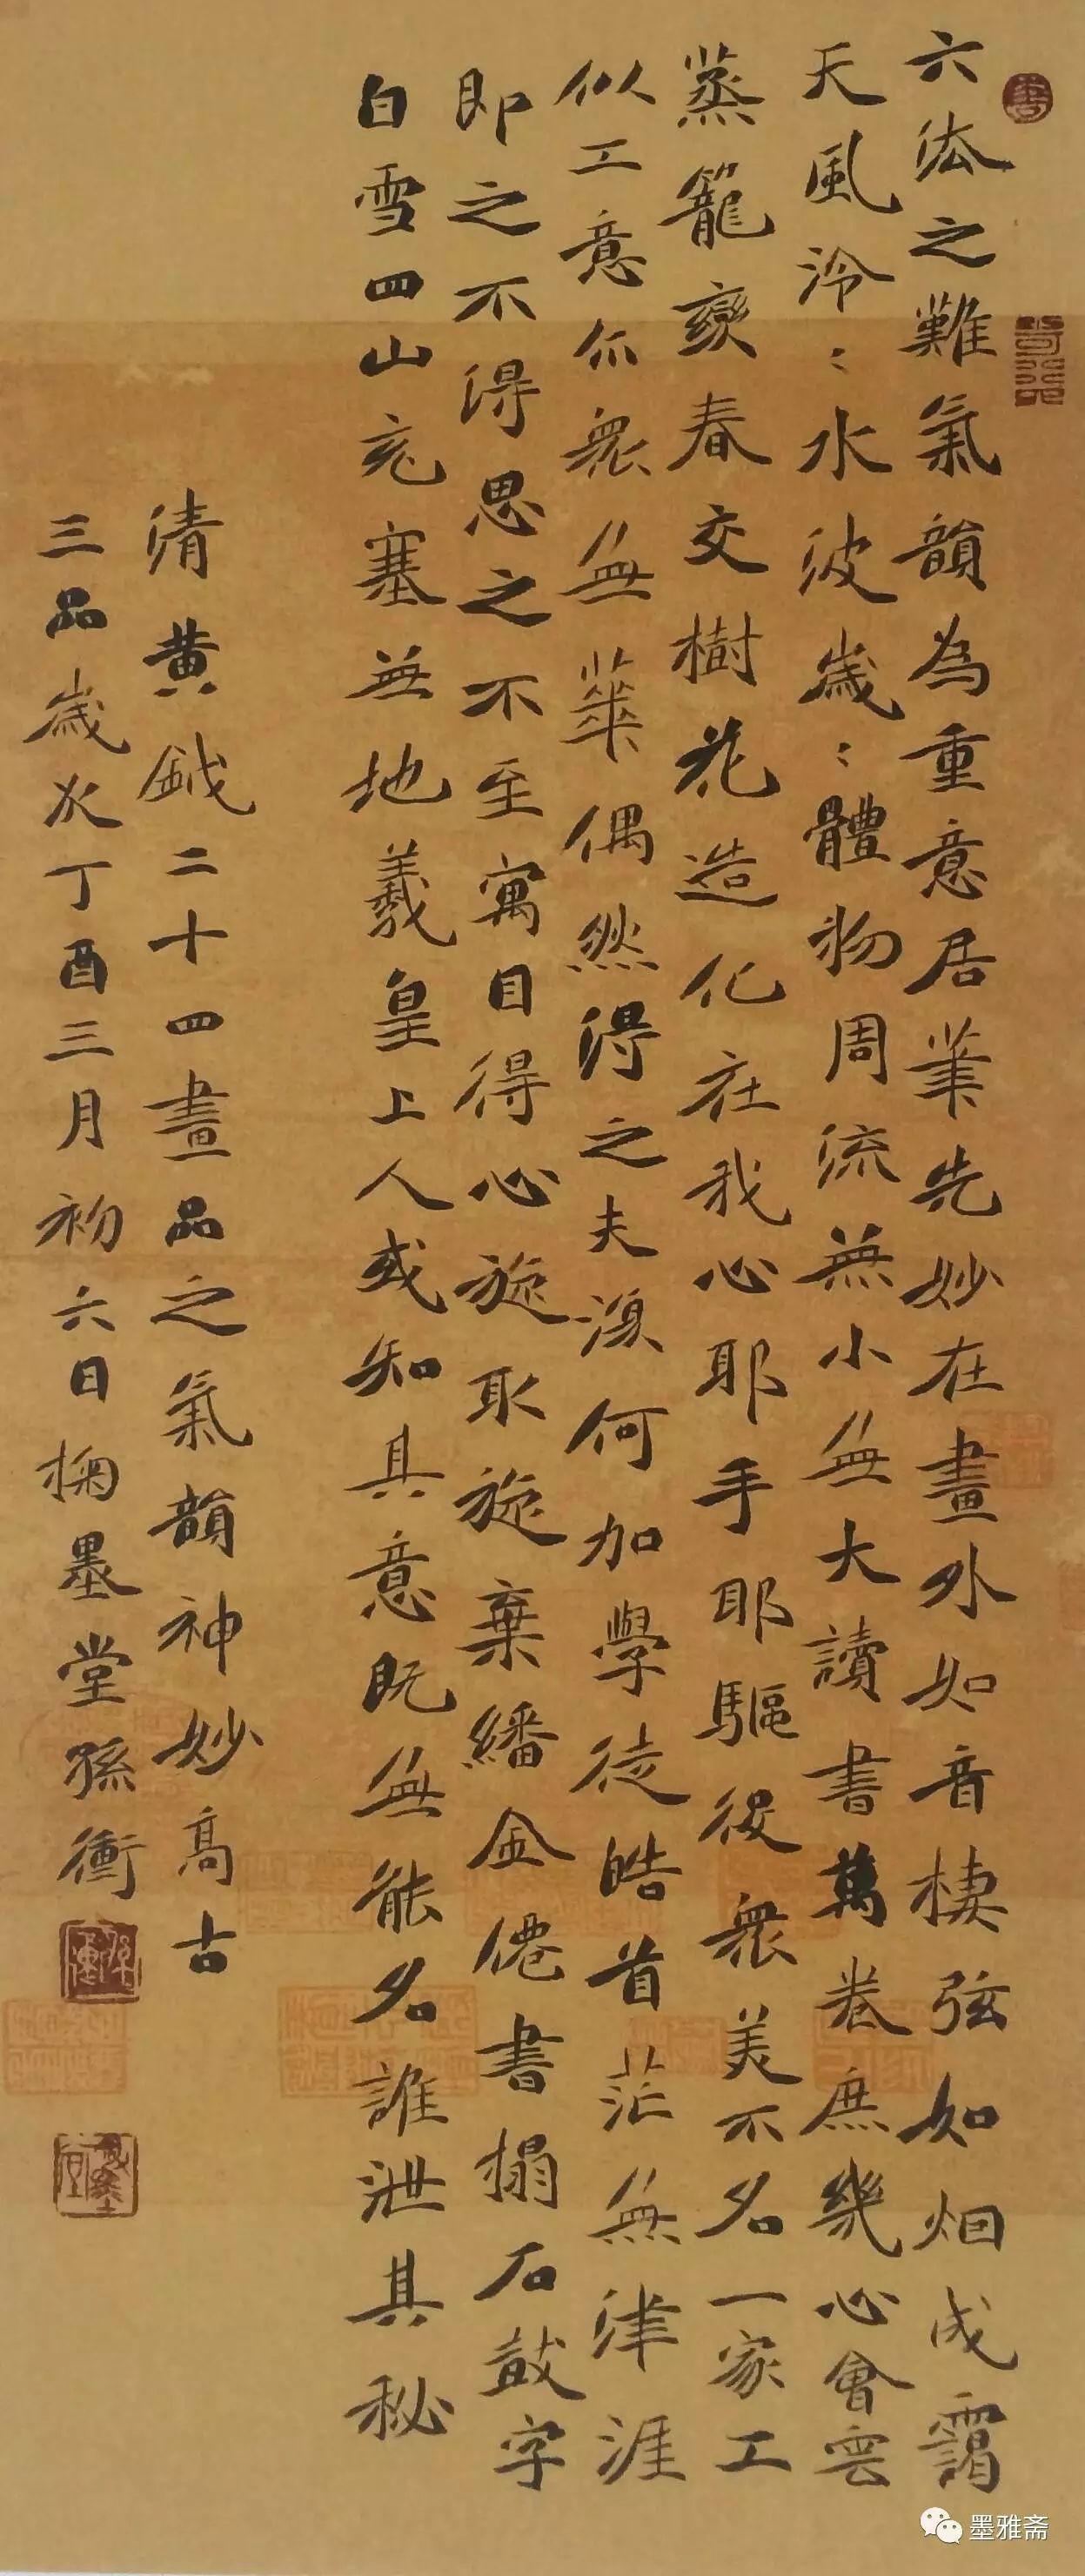 六法之難氣韻為重意居筆先妙在畫外如音棲弦如烟成靄
天風泠〻水波歲〻體物周流無小無大讀書萬卷庶幾心會雲
蒸籠變春交樹花造化在我心耶手耶驅役衆美不名一家工
似工意尒衆無筆偶然得之夫湏何加學徒皓首茫無津涯
即之不得思之不至寓目得心旋取旋棄繙金僊書搨石鼓字
白雪四山充塞無地羲皇上人或知其意既無能名誰泄其秘
清黄鉞二十四畫品之氣韻神妙髙古
三品歲次丁酉三月初六日掬墨堂孫衝
墨雅斋